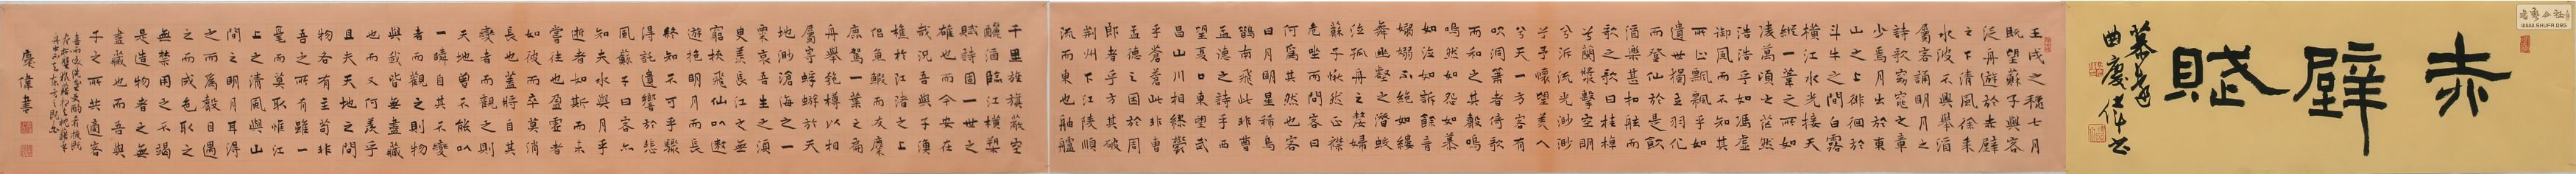 赤壁賦
曲慶偉書
壬戌之穐七月
既望蘇子與客
泛舟遊於赤壁
之下清風徐來
水波不興舉酒
屬客誦明月之
詩歌窈窕之章
少焉月出於東
山之上徘徊於
斗牛之間白露
橫江水光接天
縱一葦之所如
凌萬頃之茫然
浩浩乎如馮虛
御風而不知其
所止飄飄乎如
遺世獨立羽化
而登仙於是飲
酒樂甚扣舷而
歌之歌曰桂棹
兮蘭槳擊空明
兮泝流光渺渺
兮予懷望美人
兮天一方客有
吹洞簫者倚歌
而和之其聲嗚
嗚然如怨如慕
如泣如訴餘音
嫋嫋不絕如縷
舞幽壑之潛蛟
泣孤舟之嫠婦
蘇子愀然正襟
危坐而問客曰
何爲其然也客
曰月明星稀烏
鵲南飛此非曹
孟德之詩乎西
望夏口東望武
昌山川相繆鬱
乎蒼蒼此非曹
孟德之困於周
郎者乎方其破
荊州下江陵順
流而東也舳艫
千里旌旗蔽空
釃酒臨江橫槊
賦詩固一世之
雄也而今安在
哉況吾與子漁
樵於江渚之上
侶魚鰕而友麋
鹿駕一葉之扁
舟舉匏樽以相
屬寄蜉蝣於天
地渺滄海之一
粟哀吾生之須
臾羨長江之無
窮挾飛仙以遨
遊抱明月而長
終知不可乎驟
得託遺響於悲
風蘇子曰客亦
知夫水與月乎
逝者如斯而未
嘗往也盈虛者
如彼而卒莫消
長也蓋將自其
變者而觀之則
天地曾不能以
一瞬自其不變
者而觀之則物
與我皆無盡藏
也而又何羨乎
且夫天地之間
物各有主苟非
吾之所有雖一
毫而莫取惟江
上之清風與山
間之明月耳得
之而爲聲目遇
之而成色取之
無禁用之不竭
是造物者之無
盡藏也而吾與
子之所共適客
喜而笑洗盞更酌肴核既
盡杯盤狼藉相與枕藉乎舟
中不知東方之既白
慶偉書
WWW.SHUFA.ORG